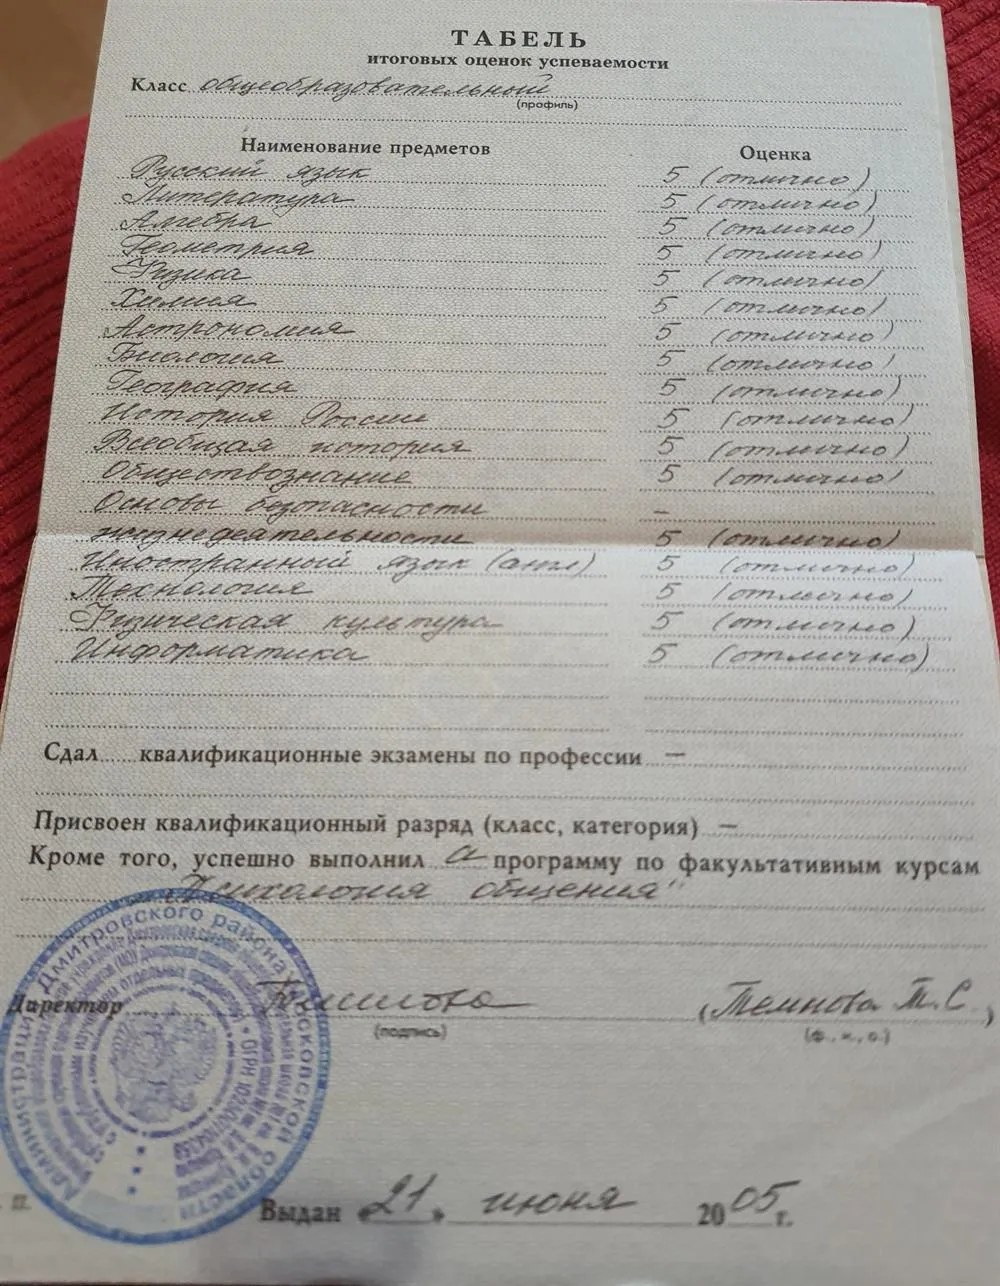 ТАБЕЛЬ
итоговых оценок успеваемости
Класс общеобразовательный
(профиль)
Наименование предметов Оценка
Русский язык 5 (отлично)
Литература 5 (отлично)
Алгебра 5 (отлично)
Геометрия 5 (отлично)
Физика 5 (отлично)
Химия 5 (отлично)
Астрономия 5 (отлично)
Биология 5 (отлично)
География 5 (отлично)
История России 5 (отлично)
Всеобщая история 5 (отлично)
Обществознание 5 (отлично)
Основы безопасности –
жизнедеятельности 5 (отлично)
Иностранный язык (англ) 5 (отлично)
Технология 5 (отлично)
Физическая культура 5 (отлично)
Информатика 5 (отлично)
Сдал квалификационные экзамены по профессии —
Присвоен квалификационный разряд (класс, категория) —
Кроме того, успешно выполнил а программу по факультативным курсам
"Психология общения"
Администрация Дмитровского района Московской области
Директор (Темнова Т.С.)
(подпись) (ф., и., о.)
Выдан «21» июня 2005 г.